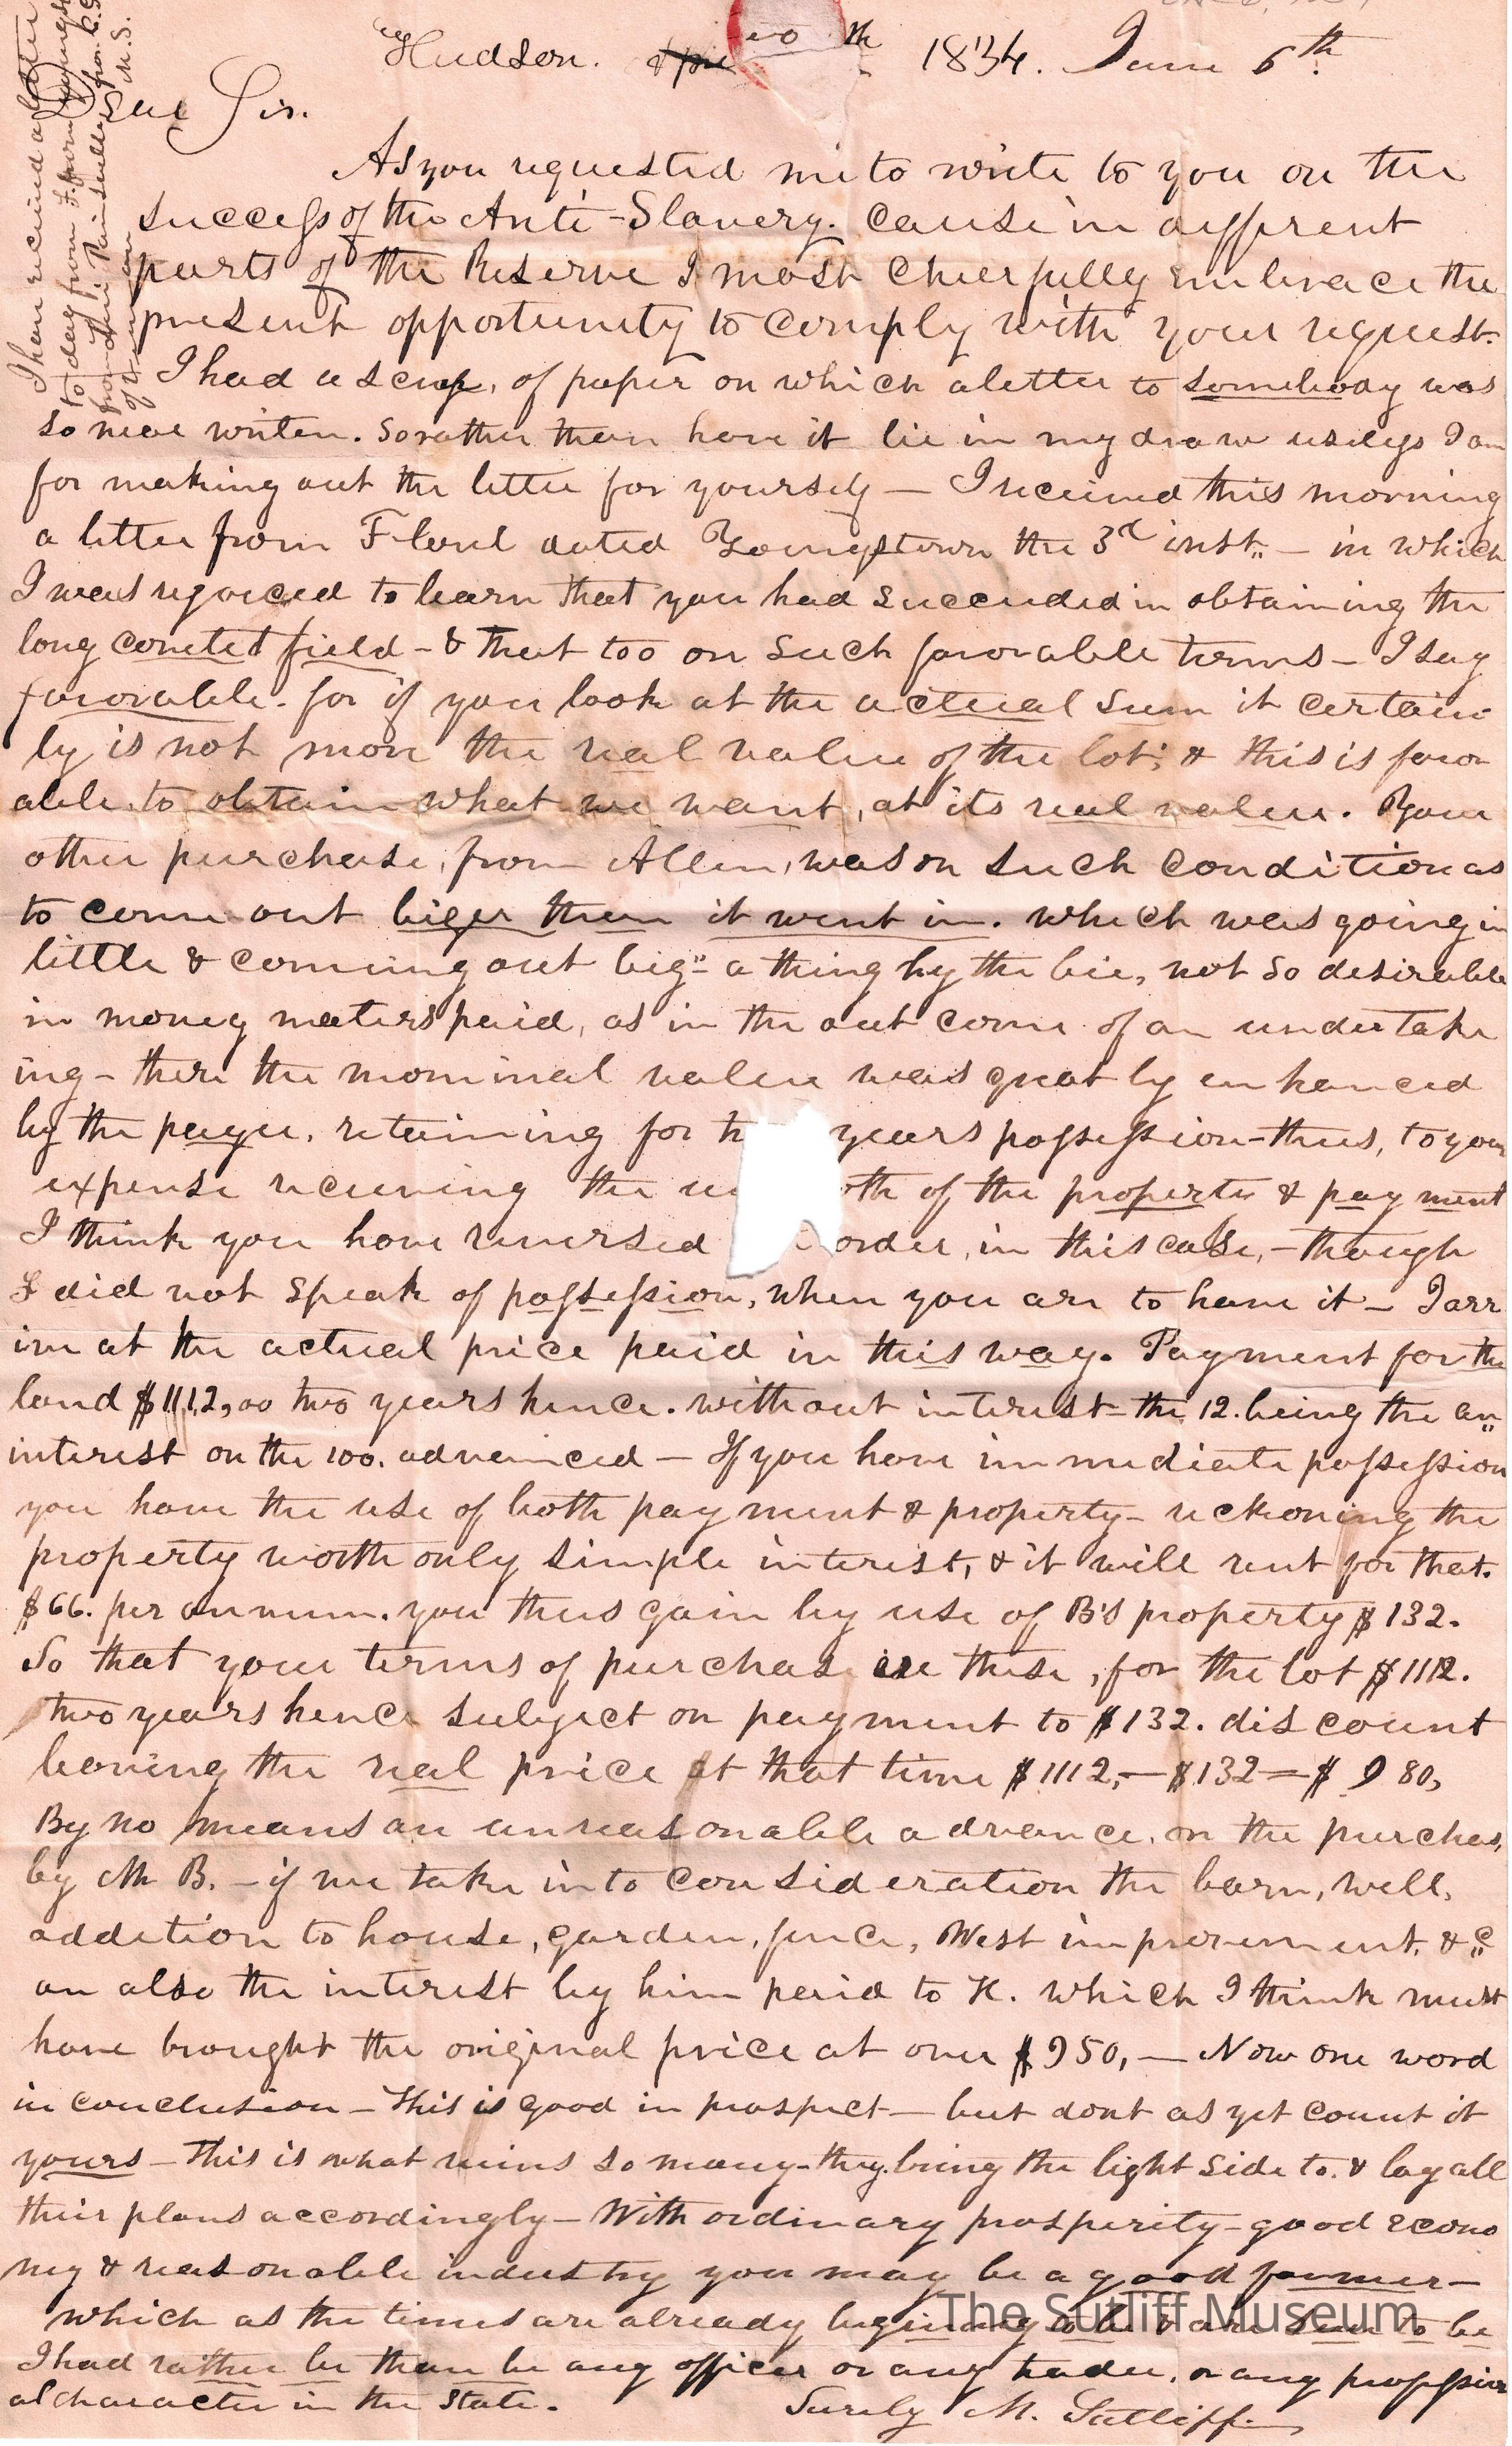 Hudson. 20th 1834. June 6th
Dear Sir.
As you requested me to write to you on the
success of the Anti-Slavery. Cause in different
parts of the Reserve I most cheerfully embrace the
present opportunity to comply with your request.
I had a scrap, of paper on which a letter to somebody was
so near writen. So rather than have it lie in my draw useless I am
for making out the letter for yourself — I received this morning
a letter from Flord dated Youngstown the 3d inst. — in which
I was rejoiced to learn that you had succeeded in obtaining the
long coveted field - & that too on such favorable terms — I say
favorable. for if you look at the actual sum it certain
ly is not more the real value of the lot; & this is favor
able. to obtain what we want, at its real value. Your
other purchase, from Allen, was on such condition as
to come out biger than it went in. which was going in
little & comming out big" a thing by the bie, not so desirable
in money matters paid, as in the out come of an undertak
ing - there the nominal value was greatly enhanced
by the payee. retaining for years possession - thus, to your
expense receiving the oth of the property & payment
I think you have reversed order, in this case, - though
F did not speak of possession, when you are to have it — I arr
ive at the actual price paid in this way. Payment for the
land $1112,00 two years hence. without interest - the 12. being the an"
interest on the 100. advanced — If you have immediate possession
you have the use of both payment & property - reckoning the
property worth only simple interest, & it will rent for that.
$66. per annum. you thus gain by use of B's property $132.
So that your terms of purchase are these, for the lot $1112.
two years hence subject on payment to $132. discount
leaving the real price at that time $1112,—$132=$980,
By no means an unreasonable advance, on the purchas,
by Mr B. - if we take into consideration the barn, well,
addition to house, garden, fence, West improvement. &c
an also the interest by him paid to K. which I think must
have brought the original price at over $950, — Now one word
in conclusion — this is good in prospect — but dont as yet count it
yours — This is what ruins so many - they bring the light side to. & lay all
their plans accordingly — With ordinary prosperity - good econo
my & reasonable industry you may be a good farmer —
which as the times are already begining to be & are sure to be
I had rather be than be any officer or any trader, or any profession
al character in the State.
Surely M. Sutliff
I have received a letter
to day from F. from Youngst
from
of
M. S.
The Sutliff Museum